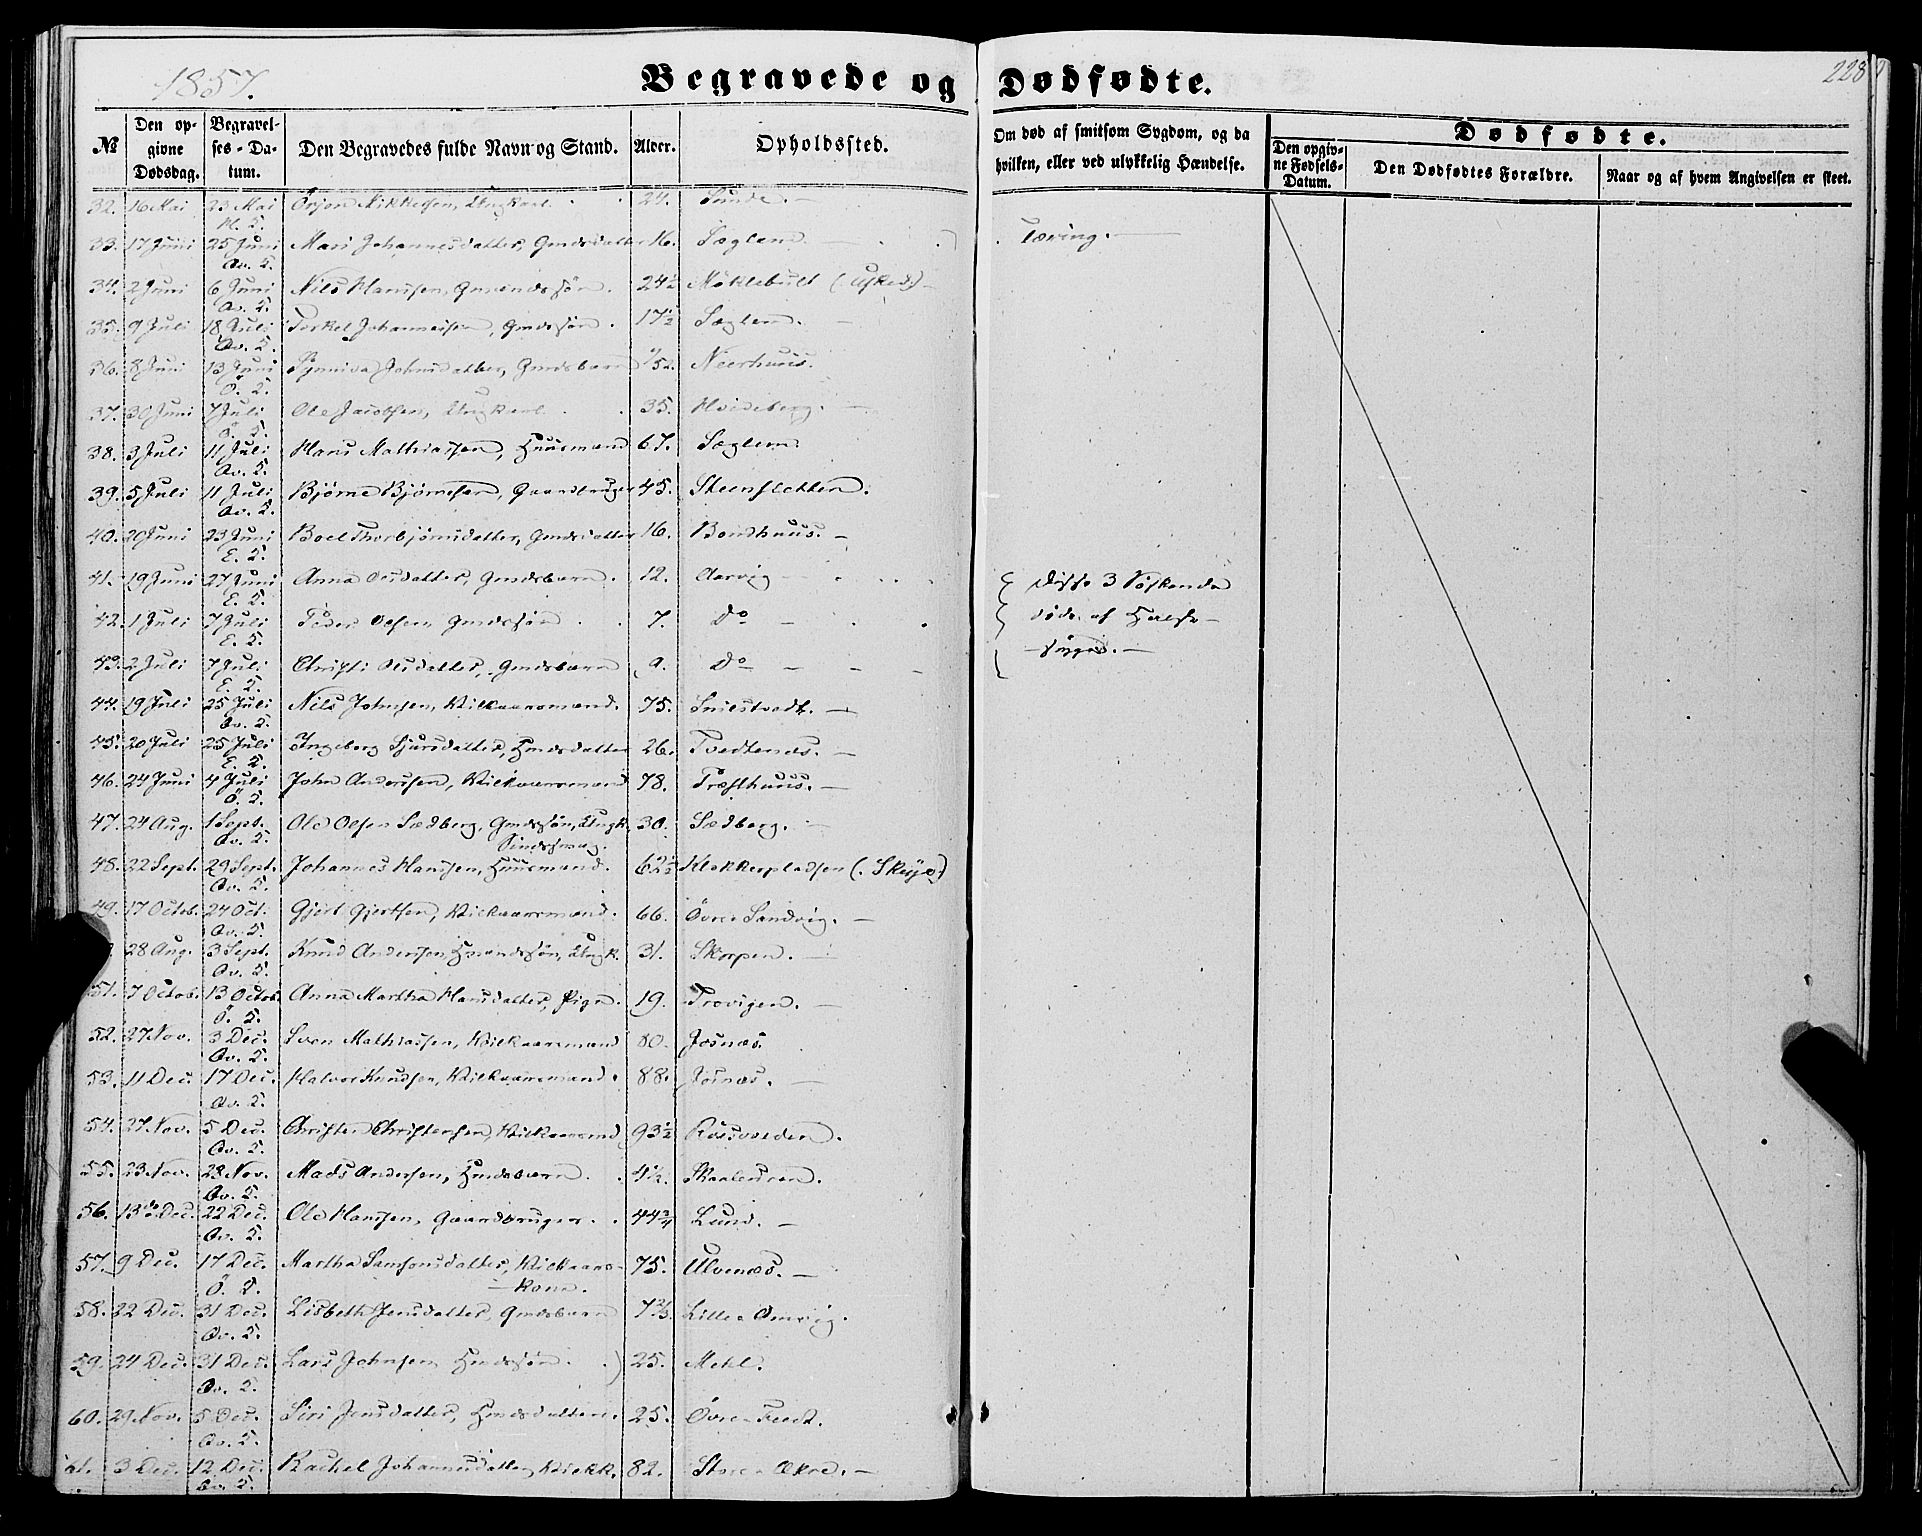 1857.
Begravede og Dødfødte.
228
№
Den opgivne Dødsdag.
Begravelses-Datum.
Den Begravedes fulde Navn og Stand.
Alder.
Opholdssted.
Om død af smitsom Sygdom, og da hvilken, eller ved ulykkelig Hændelse.
Dødfødte.
Den opgivne Fødsels-Datum.
Den Dødfødtes Forældre.
Naar og af hvem Angivelsen er skeet.
32. 16 Mai 23 Mai Mikkelsen, Ungkarl. 27. Sunde. —
33. 17 Juni 25 Juni Mari Johannesdatter, Gmdsdatter 16. Sæglem — Tæring. —
34. 2 Juni 6 Juni Nils Hanssen, Gmandssøn. 24½ Møklebust (Usked.)
35. 9 Juli 18 Juli Torkel Johannessen, Gmdssøn. 17½ Sæglem. —
36. 8 Juni 13 Juni Synniva Johnsdatter, Gmdsbarn /52. Neerhuus.
37. 30 Juni 7 Juli Ole Jacobsen, Ungkarl. 35. Hvideberg. —
38. 3 Juli 11 Juli Hans Mathiassen, Huusmand 67. Sæglem
39. 5 Juli 11 Juli Bjørne Bjørnesen, Gaardbruger 45. Steensletten.
40. 20 Juni 23 Juni Boel Thorbjørnsdatter, Gmdsdatter 16. Bondhuus. —
41. 19 Juni 27 Juni Anna Olsdatter, Gmdsbarn. 12. Aarvig — Disse 3 Søskende
42. 1 Juli 7 Juli Peder Olsen, Gmdssøn 7. Do — døde af Halsk—
43. 2 Juli 7 Juli Christi Olsdatter, Gmdsbarn 9. Do — — syge. —
44. 19 Juli 25 Juli Nils Johnsen, Vilkaarsmand. 75. Sniltvedt. —
45. 20 Juli 25 Juli Ingeborg Sjursdatter, Hmdsdatter 26. Tvedtenæs. —
46. 24 Juni 4 Juli John Anderssen, Vilkaarsmand 78. Træsthuus. —
47. 24 Aug. 1 Sept. Ole Olsen Sædberg, Gmdssøn, Ungk. 30. Sædberg. —
Sindssvag.
48. 22 Sept. 29 Sept. Johannes Hanssen, Huusmand. 62½ Klokkerpladsen (Skeije)
49. 17 Octob. 24 Oct. Gjert Gjertsen, Vilkaarsmand. 66. Øvre Sandvig. —
28 Aug. 3 Sept. Knud Andersen, Hmandssøn, Ungk. 31. Skorpen. —
51. 7 Octob. 13 Octob. Anna Martha Hansdatter, Pige. 19. Trovigen. —
52. 27 Nov. 3 Dec. Sven Mathiassen, Vilkaarsmand 80. Jøsnæs.
53. 11 Dec. 17 Dec. Halvor Knudsen, Vilkaarsmand. 88. Jøsnæs. —
54. 27. Nov. 5 Dec. Christen Christensen, Vilkaarsmd 93½ Røssvolden.
55. 23 Nov. 28 Nov. Mads Andersen, Hmdsbarn. 4½. Skaaleuren.
56. 13 Dec. 22 Dec. Ole Hanssen, Gaardbruger. 44¾ Lund. —
57. 9 Dec. 17 Dec. Martha Samsonsdatter, Vilkaars— 75. Ulvenæs. —
— Kone.
58. 22 Dec. 31 Dec. Lisbeth Jensdatter, Gmdsbarn 7⅔. Lille Omvig.
59. 24 Dec. 31 Dec. Lars Johnsen Hmdssøn. 25. Mehl.
60. 29 Nov. 5 Dec. Siri Jensdatter, Hmdsdatter. 25. Øvre Feedt.
61. 3 Dec. 12 Dec. Rachel Johannesdatter, Vilkk. 82. Store Økre. —